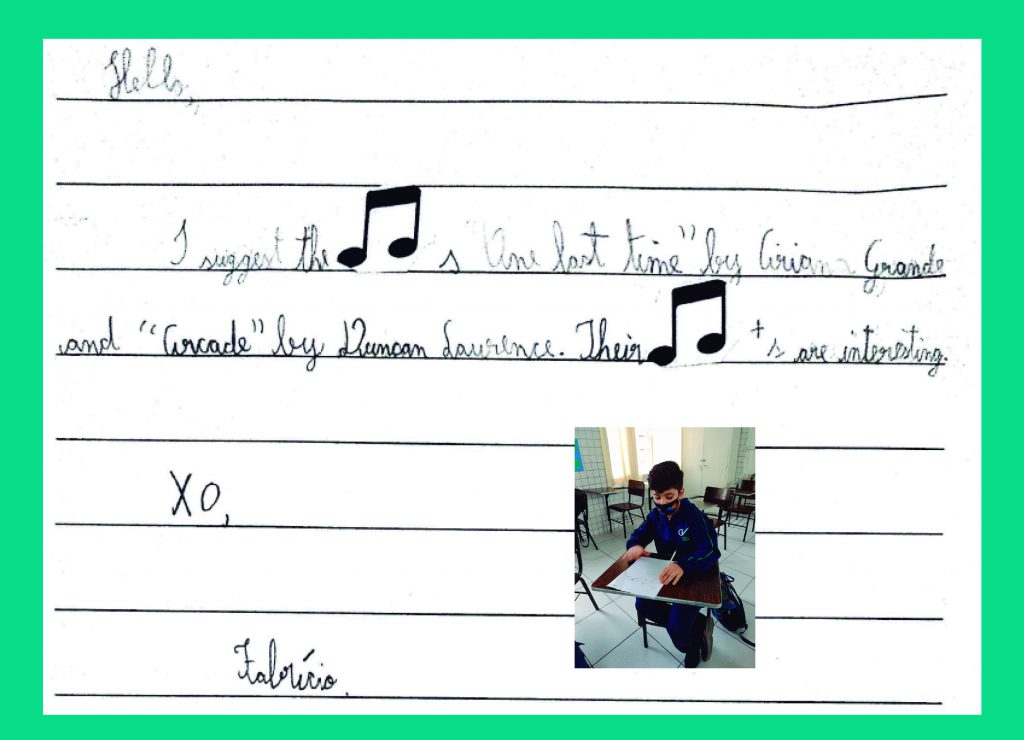 Hello,
I suggest the ♫ s "One last time" by Ariana Grande
and "Arcade" by Duncan Laurence. Their ♫ +s are interesting.
XO,
Fabrício.